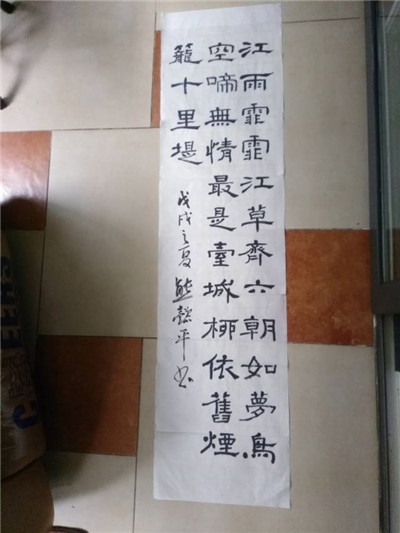 江雨霏霏江草齊六朝如夢鳥
空啼無情最是臺城柳依舊煙
籠十里堤
戊戌之夏熊懿平书